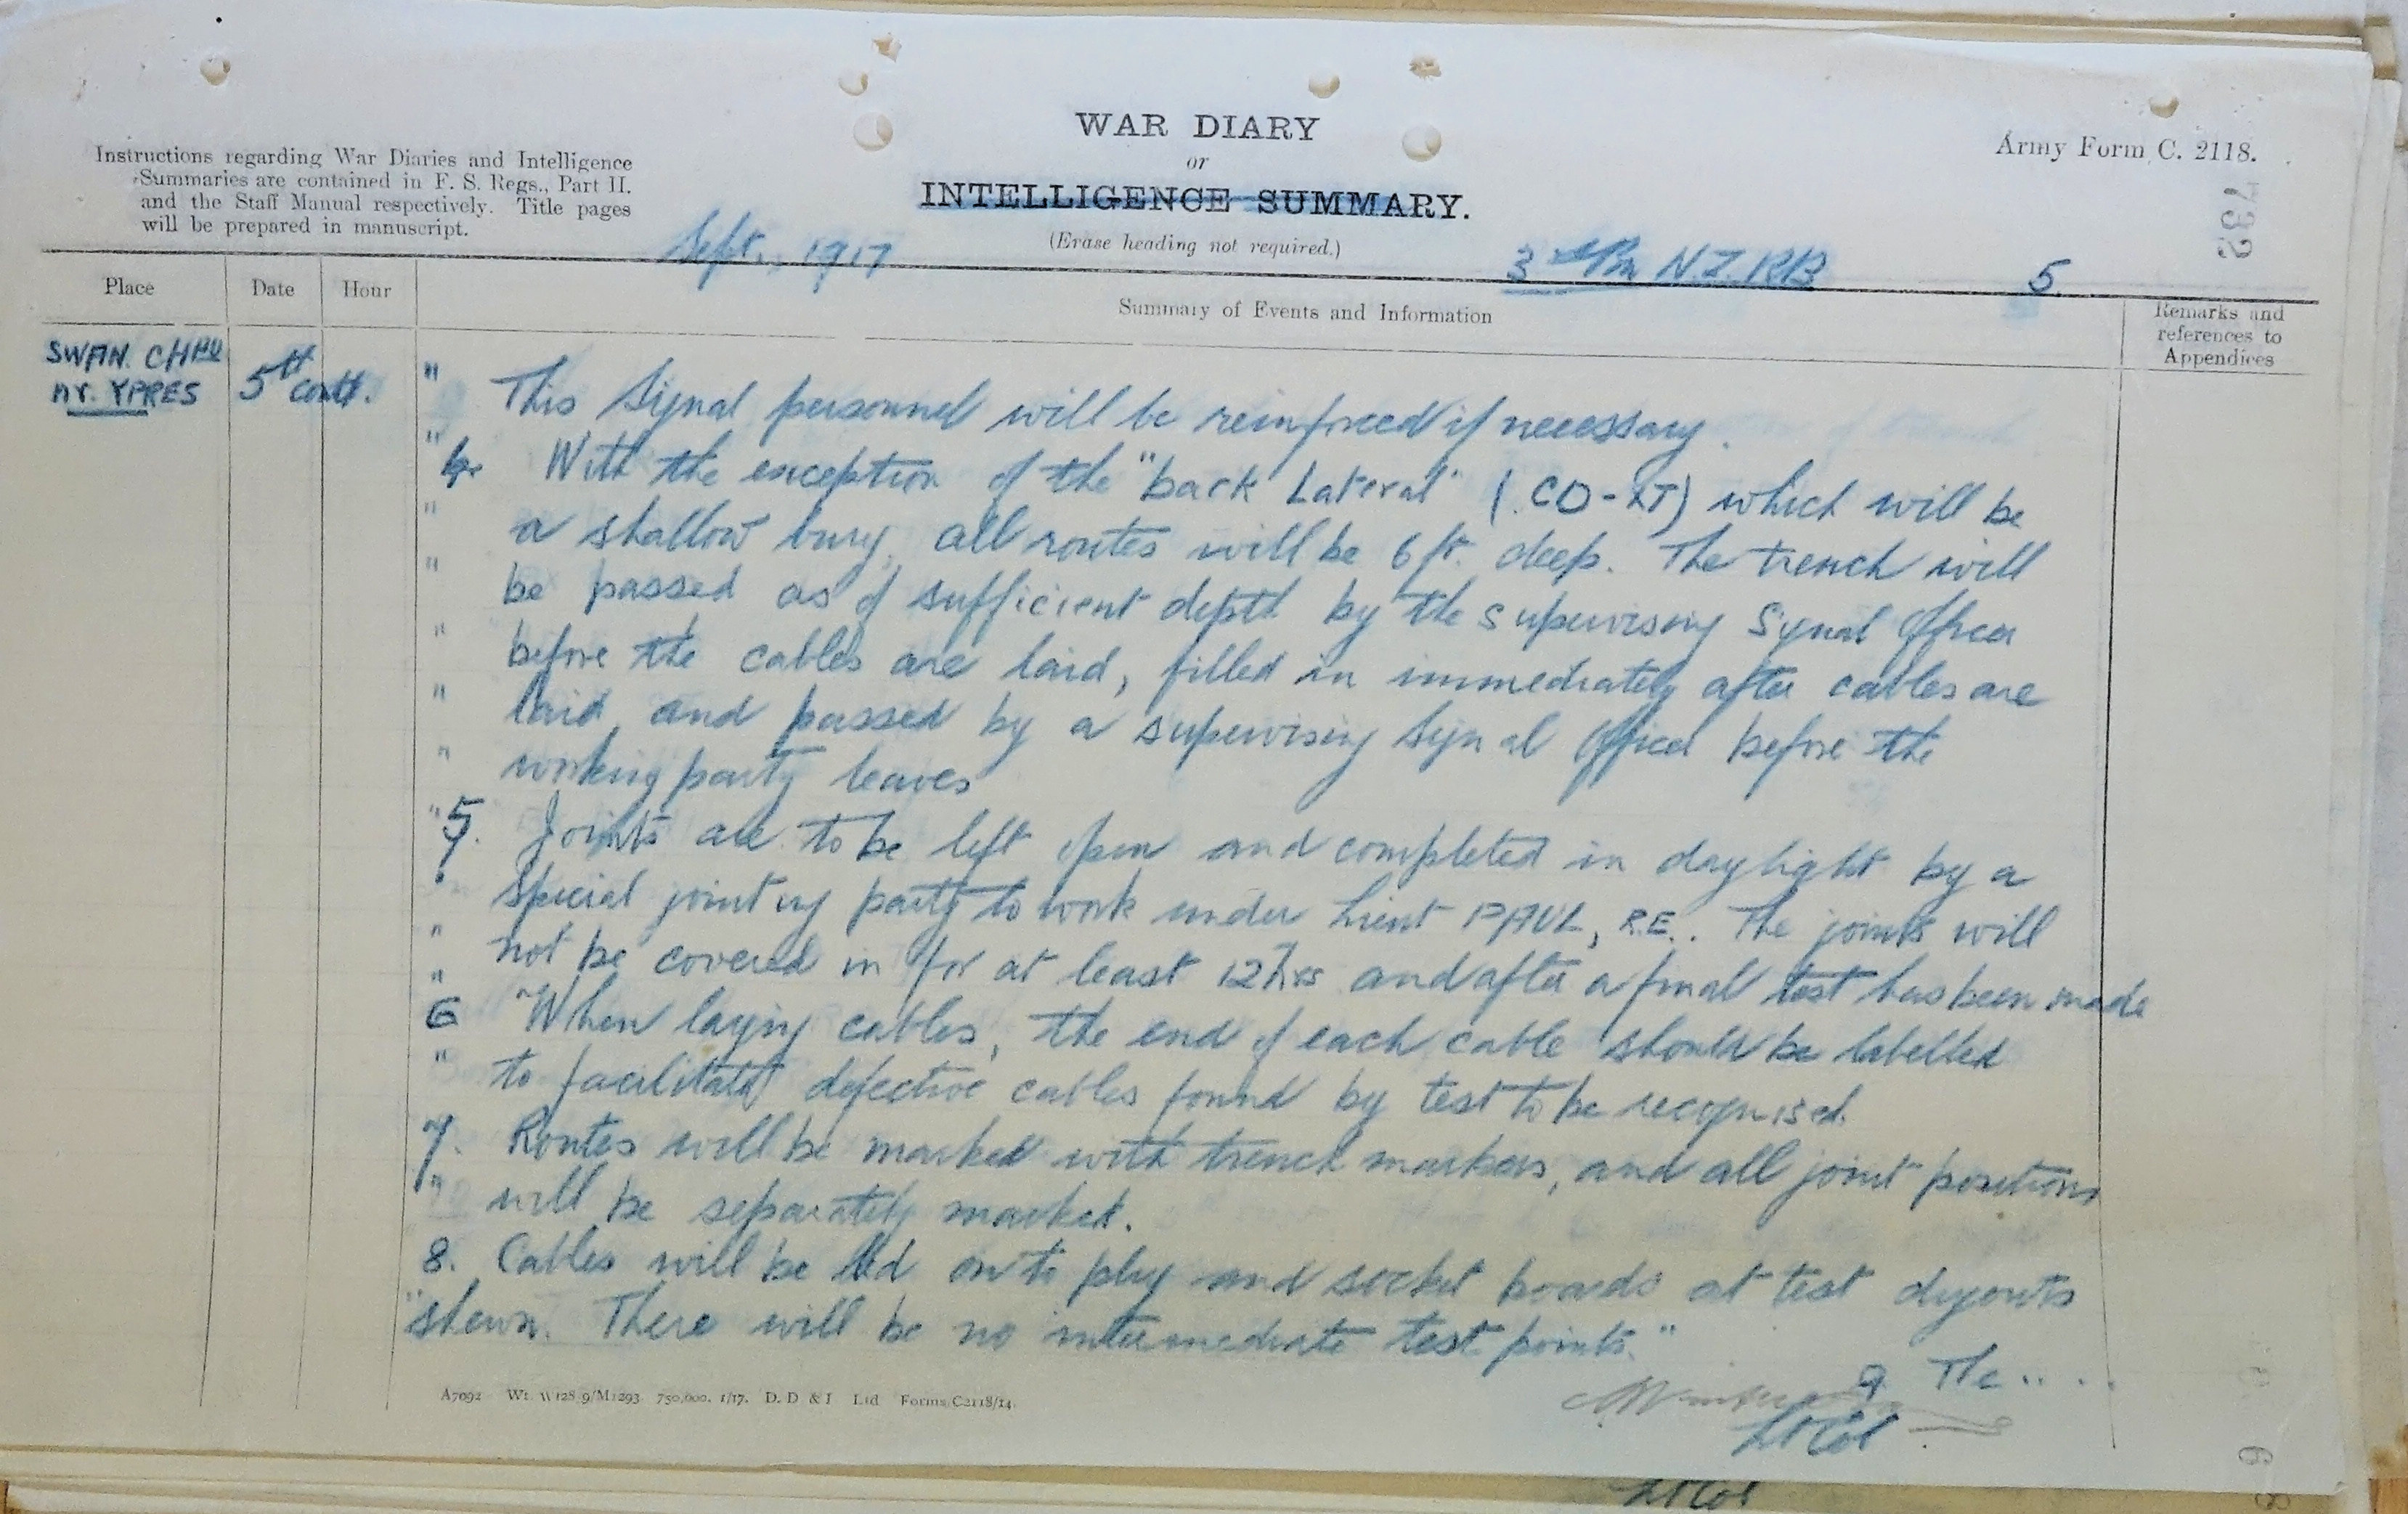 WAR DIARY
or
INTELLIGENCE SUMMARY.
(Erase heading not required.)
Army Form C. 2118.
732
Instructions regarding War Diaries and Intelligence
Summaries are contained in F. S. Regs., Part II.
and the Staff Manual respectively. Title pages
will be prepared in manuscript.
Sept., 1917
3rd Bn N.Z.RB
5
Place
Date
Hour
Summary of Events and Information
Remarks and
references to
Appendices
SWAN. CHAU
nr. YPRES
5th contd.
" This Signal personnel will be reinforced if necessary.
" 4. With the exception of the "back Lateral" (.CO-LT) which will be
" a shallow bury, all routes will be 6 ft. deep. The trench will
" be passed as of sufficient depth by the supervising Signal Officer
" before the cables are laid, filled in immediately after cables are
" laid and passed by a supervising Signal Officer before the
" working party leaves
" 5. Joints are to be left open and completed in daylight by a
" special jointing party to work under Lieut PAUL, R.E.. The joints will
" not be covered in for at least 12 hrs and after a final test has been made
" 6 "When laying cables, the end of each cable should be labelled
" to facilitate defective cables found by test to be recognised.
" 7. Routes will be marked with trench markers, and all joint positions
" will be separately marked.
8. Cables will be led on to plug and socket boards at test dugouts
" shewn. There will be no intermediate test points."
9. The ....
Lt Col
A7092 Wt. W128 9/M1293 750,000. 1/17. D. D & J Ltd Forms/C2118/14.
Lt Col